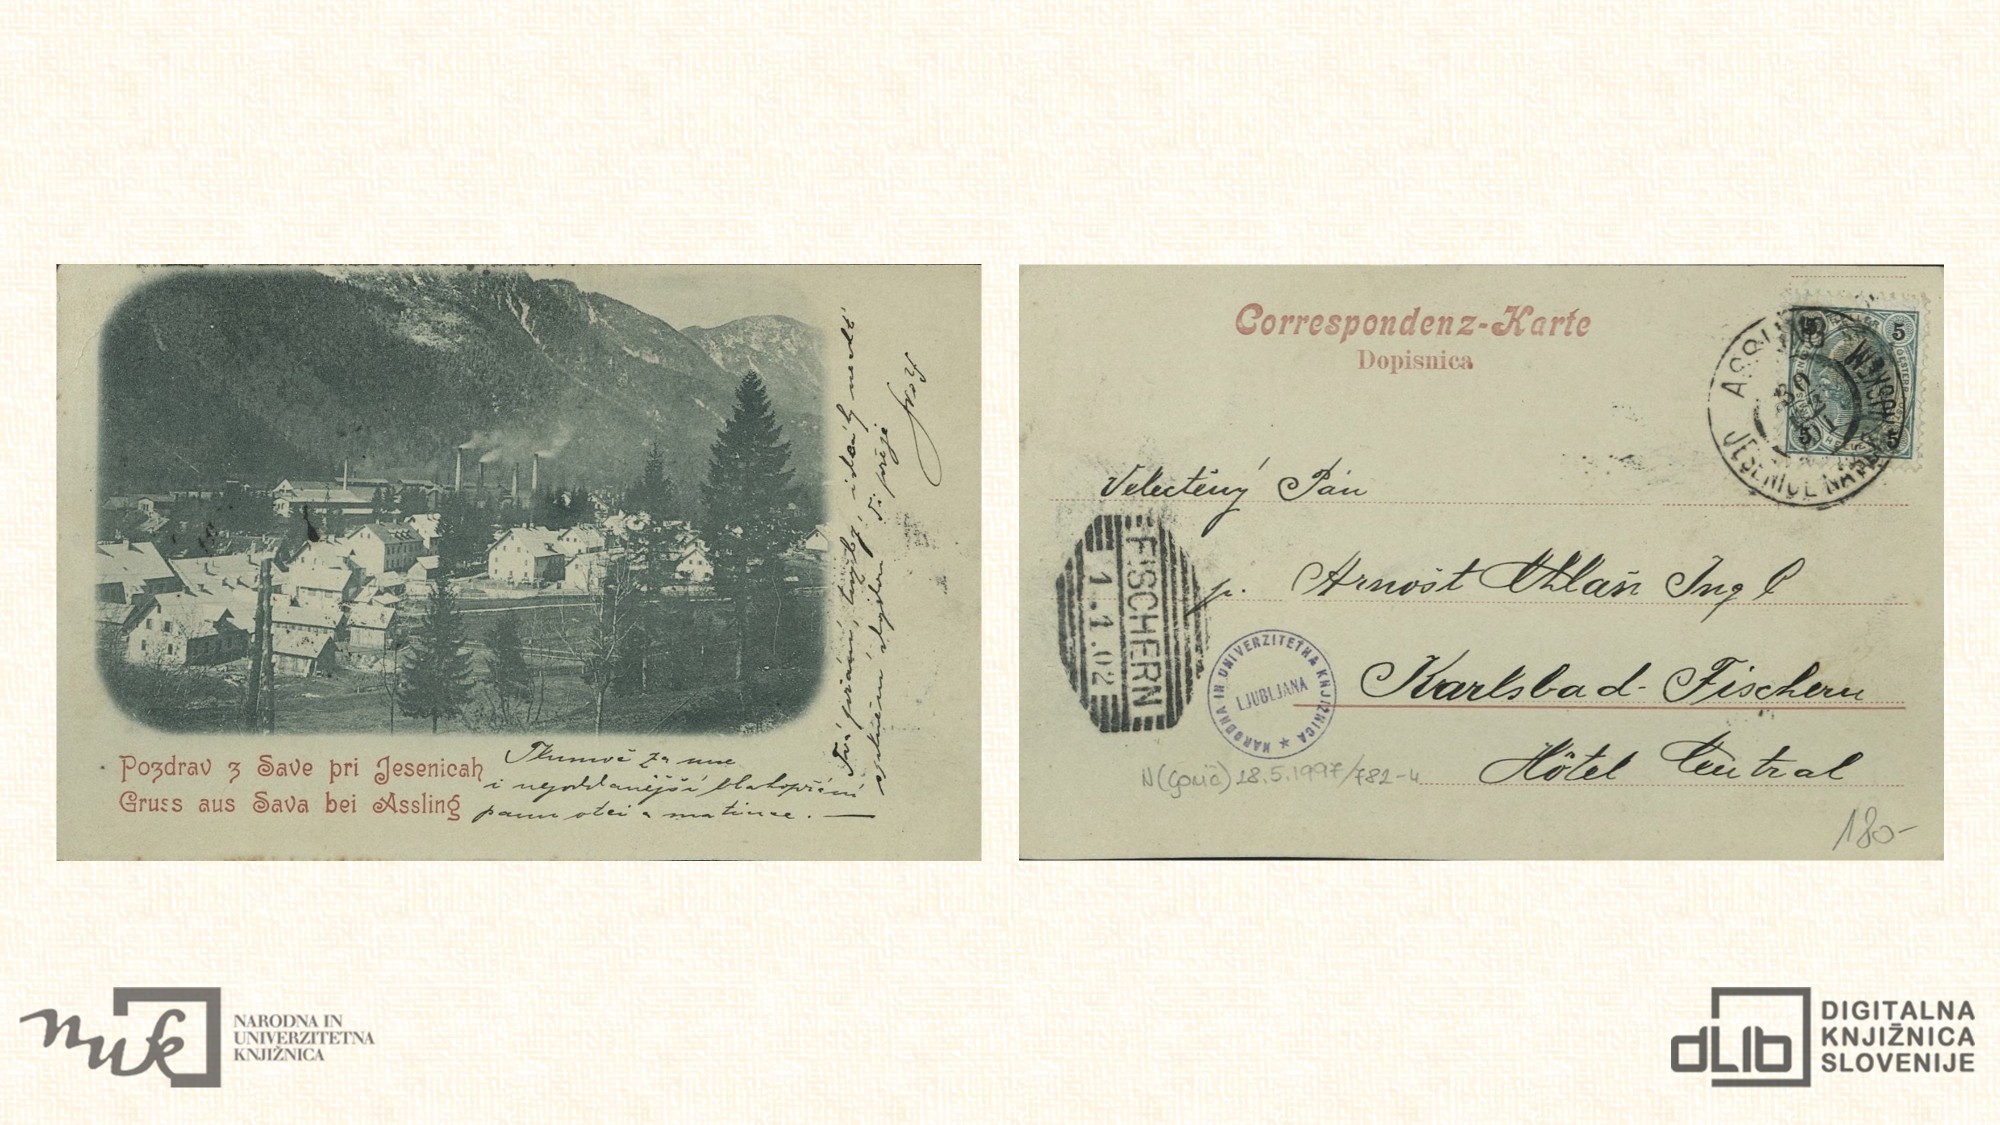 Pozdrav z Save pri Jesenicah
Gruss aus Sava bei Assling
Tlumoč za mne
i nejoddanější blahopřání
panu otci a matince. —
Tvá přání, tužby i ideály nechť
Ti přeje
Correspondenz-Karte
Dopisnica
ASSLING
JESENICE NA
5
5
5
5
Velectěný Pán
p. Arnošt Uhlař Ing
Karlsbad-Fischern
Hôtel Central
FISCHERN
1.1.02
NARODNA IN UNIVERZITETNA KNJIŽNICA
LJUBLJANA
28.5.1997/782-4
180-
nuk
NARODNA IN
UNIVERZITETNA
KNJIŽNICA
dLib
DIGITALNA
KNJIŽNICA
SLOVENIJE